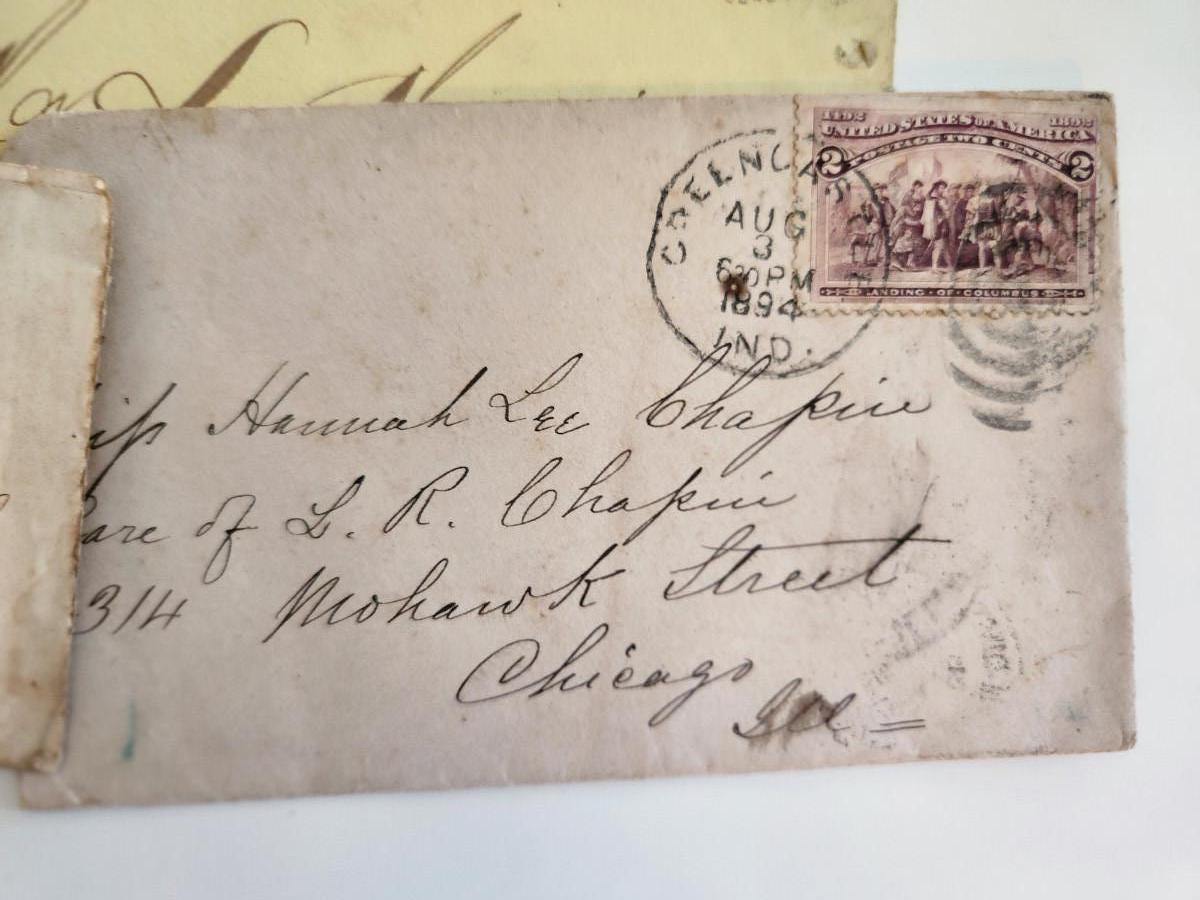 1492 1892
UNITED STATES OF AMERICA
POSTAGE TWO CENTS
2 2
LANDING · OF · COLUMBUS
GREENCAS
AUG
3
630 PM
1894
IND.
Hannah Lee Chapin
Care of L. R. Chapin
314 Mohawk Street
Chicago
Ill =